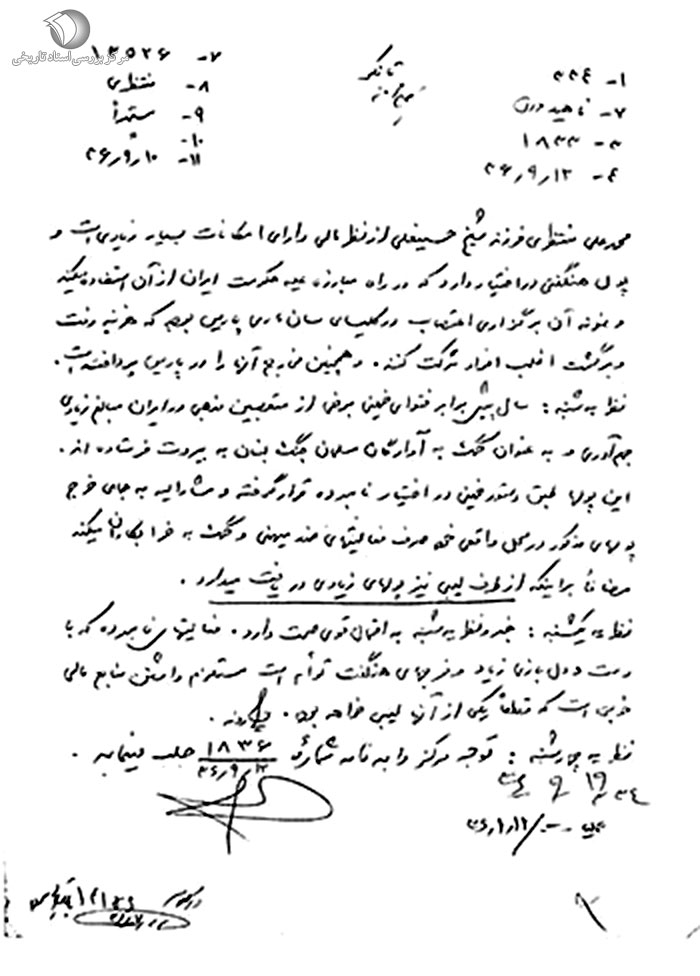 مرکز بررسی اسناد تاریخی
۱- ۳۳۴
۲- ناهید
۳- ۱۸۳۳
۴- ۳۶٫۹٫۱۲
۷- ۱۳۵۲۶
۸- منتظری
۹- مستمراً
۱۰-
۱۱- ۳۶٫۹٫۱۰
محمد علی منتظری فرزند شیخ حسینعلی از نظر مالی دارای امکانات بسیار زیادی است و
پول هنگفتی در اختیار دارد که در راه مبارزه علیه حکومت ایران از آن استفاده میکند
و نمونه آن برگزاری اعتصاب در کلیسای سان ماری پاریس بود که هزینه رفت
و برگشت اغلب افراد شرکت کننده و همچنین مخارج آنها را در پاریس پرداخته است.
نظریه شنبه : سال پیش برابر فتوای خمینی برخی از متعصبین مذهبی در ایران مبالغ زیادی
جمع آوری و به عنوان کمک به آوارگان مسلمان جنگ لبنان به بیروت فرستاده اند.
این پولها طبق دستور خمینی در اختیار نامبرده قرار گرفته و مشارالیه به جای خرج
پولهای مذکور در محل واقعی خود صرف فعالیتهای ضد میهنی و کمک به خرابکاران میکند
مضافاً بر اینکه از طرف لیبی نیز پولهای زیادی دریافت میدارد.
نظریه یکشنبه : خبر و نظریه شنبه به احتمال قوی صحت دارد. فعالیتهای نامبرده که با
دست و دل بازی زیاد و خرجهای هنگفت توأم است مستلزم داشتن منابع مالی
خوبی است که قطعاً یکی از آنها لیبی خواهد بود.
نظریه چهارشنبه : توجه مرکز را به نامه شماره ۱۸۳۶ جلب مینماید.
۳۶٫۹٫۱۲